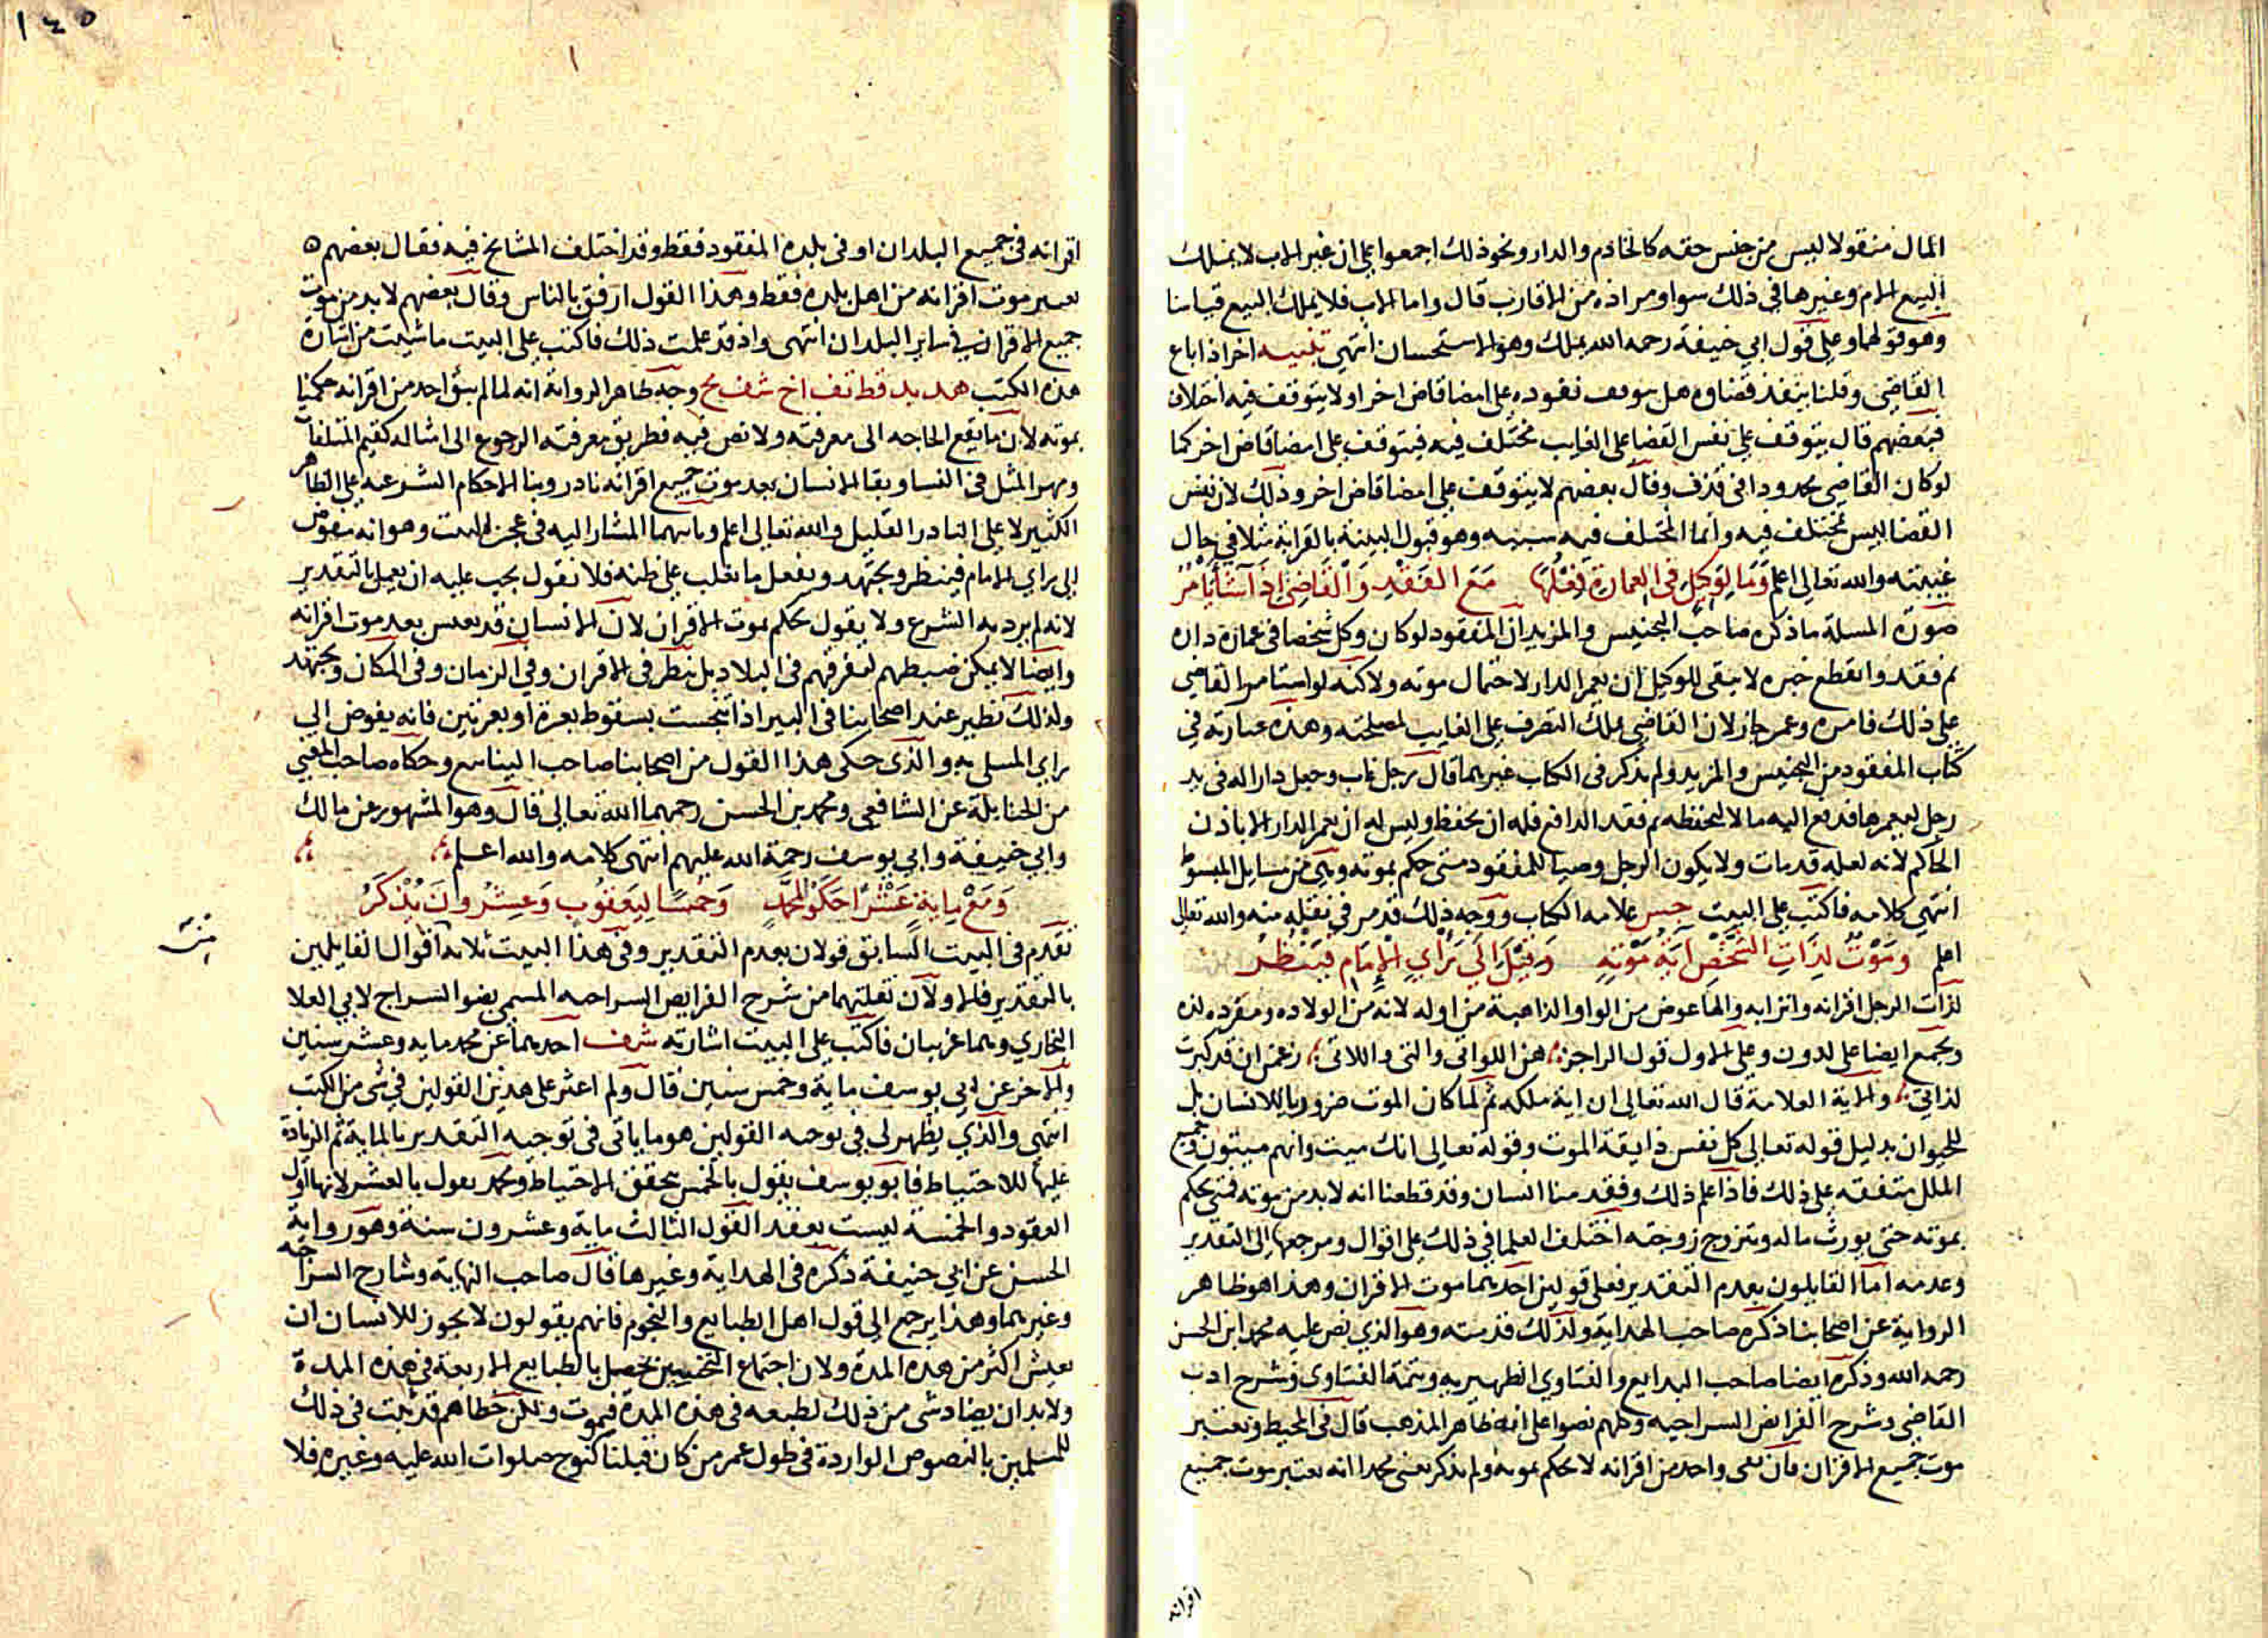 المال منقولا ليس من جنس حقه كالخادم والدار ونحو ذلك اجمعوا على ان غير الاب لا يملك
البيع الام وغيرها في ذلك سوا ومراده من الاقارب قال واما الاب فلا يملك البيع قياسا
وهو قولهما وعلى قول ابي حنيفة رحمه الله يملك وهو الاستحسان انتهى تنبيه اخر اذا باع
القاضي وقلنا ينفذ قضاوه هل يتوقف نفوذه على امضا قاض اخر او لا يتوقف فيه اختلاف
فبعضهم قال يتوقف على نفس القضا على الغايب مختلف فيه فيتوقف على امضا قاض اخر كما
لو كان القاضي محدودا في قذف وقال بعضهم لا يتوقف على امضا قاض اخر وذلك لان نفس
القضا ليس مختلف فيه وانما المختلف فيه سببه وهو قبول البينة بالقرابة مثلا في حال
غيبته والله تعالى اعلم وما لوكيل في العمارة فعلها مع الفقد والقاضي اذا شا يأمر
صورة المسلة ما ذكره صاحب التجنيس والمزيد ان المفقود لو كان وكل شخصا في عمارة داره
ثم فقد وانقطع خبره لا يبقى للوكيل ان يعمر الدار لاحتمال موته ولاكنه لو استامر القاضي
على ذلك فامره وعمر جاز لان القاضي يملك التصرف على الغايب لمصلحته وهذه عبارته في
كتاب المفقود من التجنيس والمزيد ولم يذكر في الكتاب غيرهما قال رجل غاب وجعل دارا له في يد
رجل ليعمرها فدفع اليه مالا ليحفظه ثم فقد الدافع فله ان يحفظ وليس له ان يعمر الدار الا باذن
الحاكم لانه لعله قد مات ولا يكون الرجل وصيا للمفقود متى حكم بموته وهي من مسايل المبسوط
انتهى كلامه فاكتب على البيت جس علامه الكتاب ووجه ذلك قد مر في نقله منه والله تعالى
اعلم وموت لذات الشخص آية موته وقيل الى رأي الإمام فينظر
لذات الرجل اقرانه واترابه والها عوض من الواو الذاهبة من اوله لانه من الولاده ومفرده لده
ويجمع ايضا على لدون وعلى الاول قول الراجز هن اللواتي والتي واللاتي زعمن ان قد كبرت
لداتي والاية العلامة قال الله تعالى ان اية ملكه ثم لما كان الموت ضروريا للانسان بل
للحيوان بدليل قوله تعالى كل نفس ذايقة الموت وقوله تعالى انك ميت وانهم ميتون وجميع
الملل متفقه على ذلك فاذا علم ذلك وفقد منا انسان وقد قطعنا انه لابد من موته فمتى يحكم
بموته حتى يورث ماله وتتزوج زوجته اختلف العلما في ذلك على اقوال ومرجعها الى التقدير
وعدمه اما القايلون بعدم التقدير فعلى قولين احدهما موت الاقران وهذا هو ظاهر
الرواية عن اصحابنا ذكره صاحب الهداية ولذلك قدمته وهو الذي نص عليه محمد ابن الحسن
رحمه الله وذكره ايضا صاحب البدايع والفتاوي الظهيريه وتتمة الفتاوى وشرح ادب
القاضي وشرح الفرايض السراجيه وكلهم نصوا على انه ظاهر المذهب قال في المحيط ويعتبر
موت جميع الاقران فان بقي واحد من اقرانه لا يحكم بموته ولم يذكر يعني محمدا انه يعتبر موت جميع
اقرانه
١٤٥
اقرانه في جميع البلدان او في بلده المفقود فقط وقد اختلف المشايخ فيه فقال بعضهم
يعتبر موت اقرانه من اهل بلده فقط وهذا القول ارفق بالناس وقال بعضهم لابد من موت
جميع الاقران في ساير البلدان انتهى واذ قد علمت ذلك فاكتب على البيت ما شيت من اشارة
هذه الكتب هد بد قط تف اخ شف مح وجه ظاهر الرواية انه لما لم يبق احد من اقرانه حكمنا
بموته لان ما يقع الحاجه الى معرفته ولا نص فيه فطريق معرفته الرجوع الى امثاله كقيم المتلفات
ومهر المثل في النسا وبقا الانسان بعد موت جميع اقرانه نادر وبنا الاحكام الشرعيه على الظاهر
الكثير لا على النادر القليل والله تعالى اعلم وثانيهما المشار اليه في عجز البيت وهو انه مفوض
الى راي الامام فينظر ويجتهد ويفعل ما يغلب على ظنه فلا نقول يجب عليه ان يعمل بالتقدير
لانه لم يرد به الشرع ولا يقول يحكم بموت الاقران لان الانسان قد يعيش بعد موت اقرانه
وايضا لا يمكن ضبطهم لتفرقهم في البلاد بل ينظر في الاقران وفي الزمان وفي المكان ويجتهد
ولذلك نظير عند اصحابنا في البير اذا تنجست بسقوط بعرة او بعرتين فانه يفوض الى
راي المبتلى به والذي حكى هذا القول من اصحابنا صاحب الينابيع وحكاه صاحب المغني
من الحنابلة عن الشافعي ومحمد بن الحسن رحمهما الله تعالى قال وهو المشهور عن مالك
وابي حنيفة وابي يوسف رحمة الله عليهم انتهى كلامه والله اعلم
ومع ماية عشرا حكوا لمحمد وخمسا ليعقوب وعشرون يذكر
تقدم في البيت السابق قولان بعدم التقدير وفي هذا البيت ثلاثه اقوال القايلين
بالتقدير فالاولان نقلتهما من شرح الفرايض السراجيه المسمى بضوا السراج لابي العلا
البخاري وهما غريبان فاكتب على البيت اشارته شرف احدهما عن محمد مايه وعشر سنين
والاخر عن ابي يوسف ماية وخمس سنين قال ولم اعثر على هذين القولين في شى من الكتب
انتهى والذي يظهر لي في توجيه القولين هو ما ياتي في توجيه التقدير بالماية ثم الزيادة
عليها للاحتياط فابو يوسف يقول بالخمس يتحقق الاحتياط ومحمد يقول بالعشر لانها اول
العقود والخمسة ليست بعقد القول الثالث ماية وعشرون سنة وهو رواية
الحسن عن ابي حنيفة ذكره في الهداية وغيرها قال صاحب النهاية وشارح السراجيه
وغيرهما وهذا يرجع الى قول اهل الطبايع والنجوم فانهم يقولون لا يجوز للانسان ان
يعيش اكثر من هذه المدة ولان اجتماع النحسين يحصل بالطبايع الاربعة في هذه المدة
ولابد ان يضاد شى من ذلك لطبعه في هذه المدة فيموت ولكن خطاهم قد ثبت في ذلك
للمسلمين بالنصوص الواردة في طول عمر من كان قبلنا كنوح صلوات الله عليه وغيره فلا